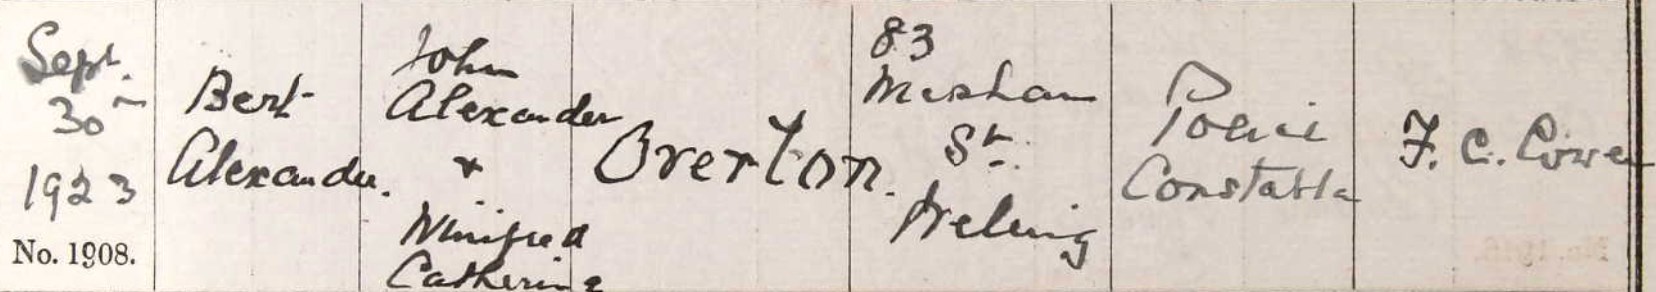 Sept.
30th
1923
No. 1908.
Bert
Alexander.
John
Alexander
+
Winifred
Catherine
Overton.
83
St.
Police
Constable
F. C. Lowe